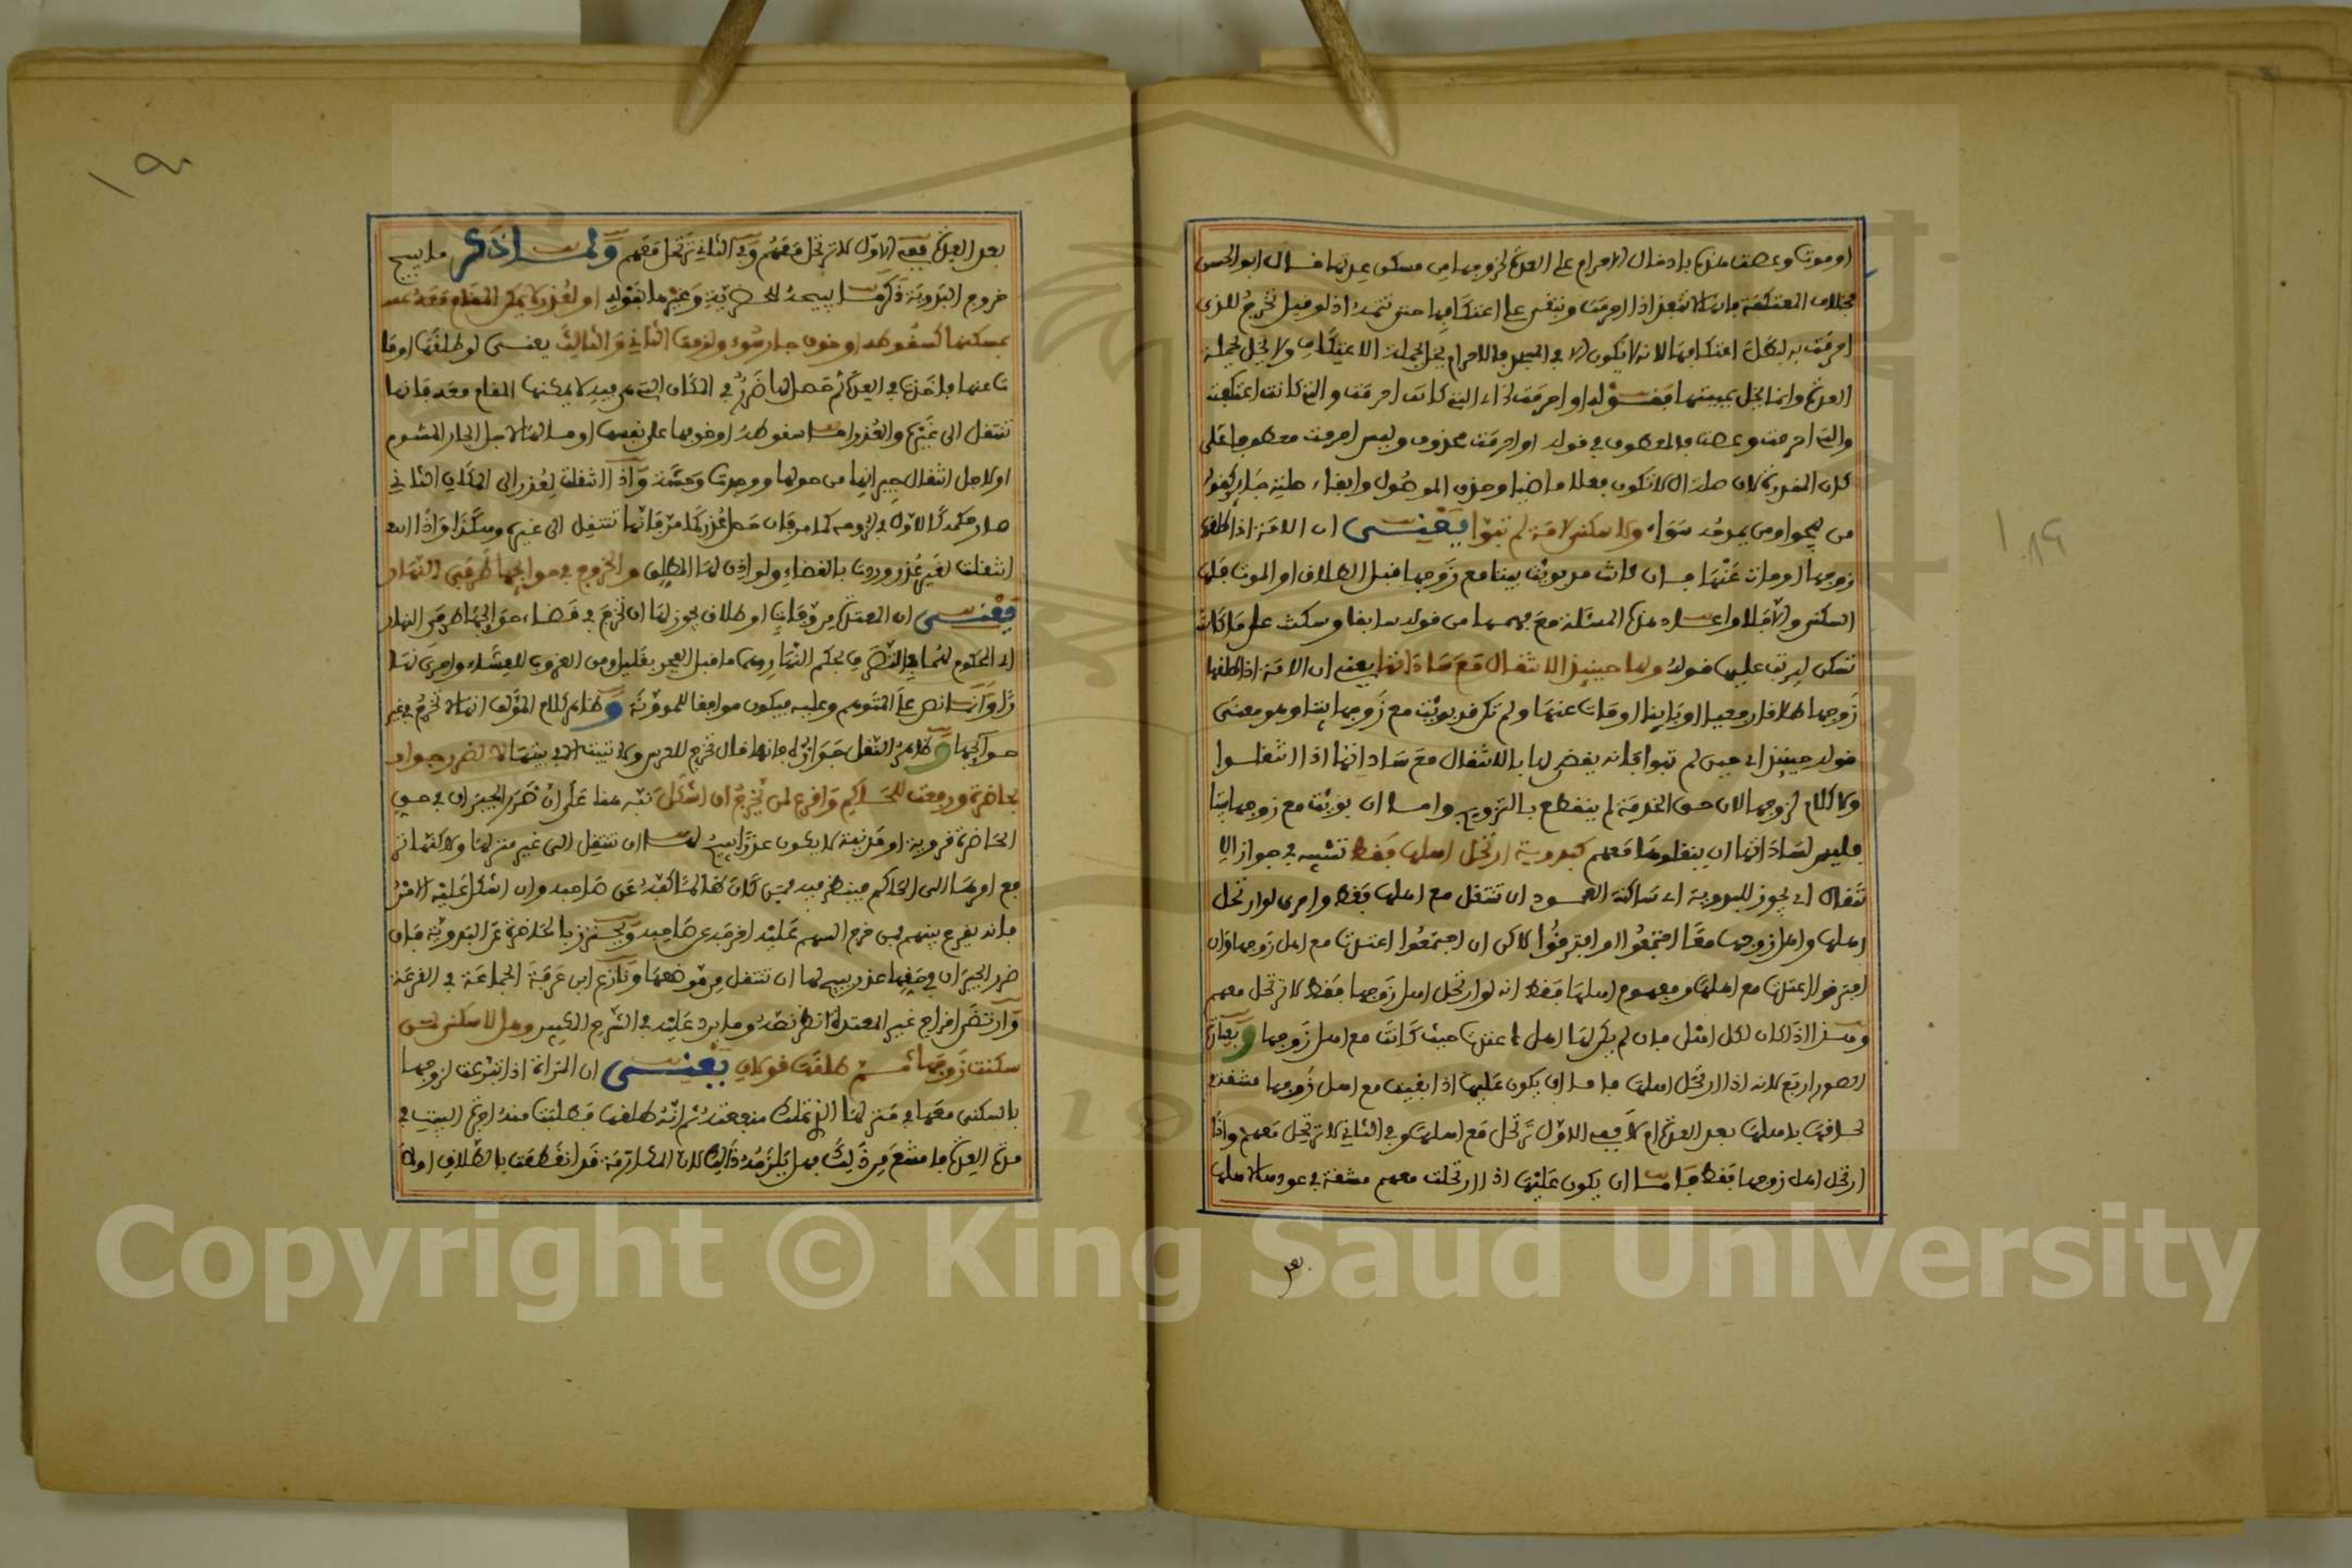 او موت وعصت هذه بادخال الاحرام على العدة لخروجها من مسكن عدتها قال ابو الحسن
بخلاف المعتكفة فانها لا تنفذ اذا احرمت وتبقى على اعتكافها حتى تتمه اذ لو قيل تخرج للذي
احرمت به لبطل اعتكافها لانه لا يكون الا في المسجد فالاحرام يخل بجملة الاعتكاف ولا يخل بجملة
العدة وانما يخل بمبيتها فقوله او احرمت
والتي احرمت وعصت فالمعطوف في قوله او احرمت محذوف وليس احرمت معطوفا على
من يهجو او من يمدحه سواء ولا سكنى لامة لم تبوأ يعني ان الامة اذا طلقها
زوجها او مات عنها فان كانت قد بوئت بيتا مع زوجها قبل الطلاق او الموت فلها
السكنى والا فلا واعاد هذه المسئلة مع فهمها من قوله سابقا وسكنت على ما كانت
تسكن ليرتب عليها قوله ولها حينئذ الانتقال مع ساداتها يعني ان الامة اذا طلقها
زوجها طلاقا رجعيا او باينا او مات عنها ولم تكن قد بوئت مع زوجها بيتا وهو معنى
قوله حينئذ اي حين لم تبوا فانه يقضى لها بالانتقال مع ساداتها اذا انتقلوا
ولا كلام لزوجها لان حق الخدمة لم ينقطع بالتزويج واما ان بوئت مع زوجها بيتا
فليس لساداتها ان ينقلوها معهم كبدوية ارتحل اهلها فقط تشبيه في جواز الا
نتقال اي يجوز للبدوية اي ساكنة العمود ان تنتقل مع اهلها فقط واحرى لو ارتحل
اهلها واهل زوجها معا اجتمعوا او افترقوا لاكن ان اجتمعوا اعتدت مع اهل زوجها وان
افترقوا اعتدت مع اهلها ومفهوم اهلها فقط انه لو ارتحل اهل زوجها فقط لا ترتحل معهم
وهذا اذا كان لكل اهل فان لم يكن لها اهل اعتدت حيث كانت مع اهل زوجها وبقيت
الصور اربع لانه اذا ارتحل اهلها فاما ان يكون عليها اذا بقيت مع اهل زوجها مشقة في
لحاقها باهلها بعد العدة ام لا ففي الاول ترتحل مع اهلها وفي الثاني لا ترتحل معهم واذا
ارتحل اهل زوجها فقط فاما ان يكون عليها اذا ارتحلت معهم مشقة في عودها لاهلها
بعد
بعد العدة ففي الاول لا ترتحل معهم وفي الثاني ترتحل معهم ولما ذكر ما يبيح
خروج البدوية ذكر ما يبيحه للحضرية وغيرها بقوله او لعذر لا يمكن المقام معه
بمسكنها كسقوطه او خوف جار سوء ولزمت الثاني والثالث يعني لو طلقها او ما
ت عنها فاخذت في العدة ثم حصل لها ضرر في المكان التي هي فيه لا يمكنها المقام معه فانها
تنتقل الى غيره والعذر اما سقوطه او خوفها على نفسها او مالها لاجل الجار المشوم
او لاجل انتقال جيرانها من حولها ووجدت وحشة واذا انتقلت لعذر الى المكان الثاني
صار حكمه كالاول في لزومه كما مر فان حصل عذر كما مر فانها تنتقل الى غيره وهكذا واذا
انتقلت لغير عذر ردت بالقضاء ولو اذن لها المطلق والخروج في حوائجها طرفي النهار
يعني ان المعتدة من وفاة او طلاق يجوز لها ان تخرج في قضاء حوائجها طرفي النهار
اي المحكوم لهما في النص بحكم النهار وهما ما قبل الفجر بقليل ومن الغروب للعشاء واحرى نها
را وانما نص على المتوهم وعليه فيكون موافقا للمدونة وظاهر كلام المؤلف انها لا تخرج في غير
حوائجها وظاهر النقل جوازه فانها قال تخرج للعرس ولا تبيت الا في بيتها لا لضرر جوار
بحاضرة ورفعت للحاكم واقرع لمن يخرج ان اشكل نبه هنا على ان ضرر الجيران في حق
الحاضرة قروية او مدنية لا يكون عذرا يبيح لها ان تنتقل الى غير منزلها ولاكنها تر
فع امرها الى الحاكم فينظر فيه فمن كان ظالما كفه عن صاحبه وان اشكل عليه الامر
فانه يقرع بينهم فمن خرج السهم عليه اخرجه عن صاحبه ويحترز بالحاضرة عن البدوية فان
ضرر الجيران في حقها عذر يبيح لها ان تنتقل من موضعها ونازع ابن عرفة الجماعة في القرعة
وارتضى اخراج غير المعتدة انظر نصه وما يرد عليه في الشرح الكبير وهل لا سكنى لمن
سكنت زوجها ثم طلقت قولان يعني ان المراة اذا تبرعت لزوجها
بالسكنى معها في منزلها الذي تملك منفعته ثم انه طلقها فطلبت منه اجرة البيت في
مدة العدة فامتنع من ذلك فهل يلزمه ذلك لان المكارمة قد انقطعت بالطلاق او لا
Copyright © King Saud University